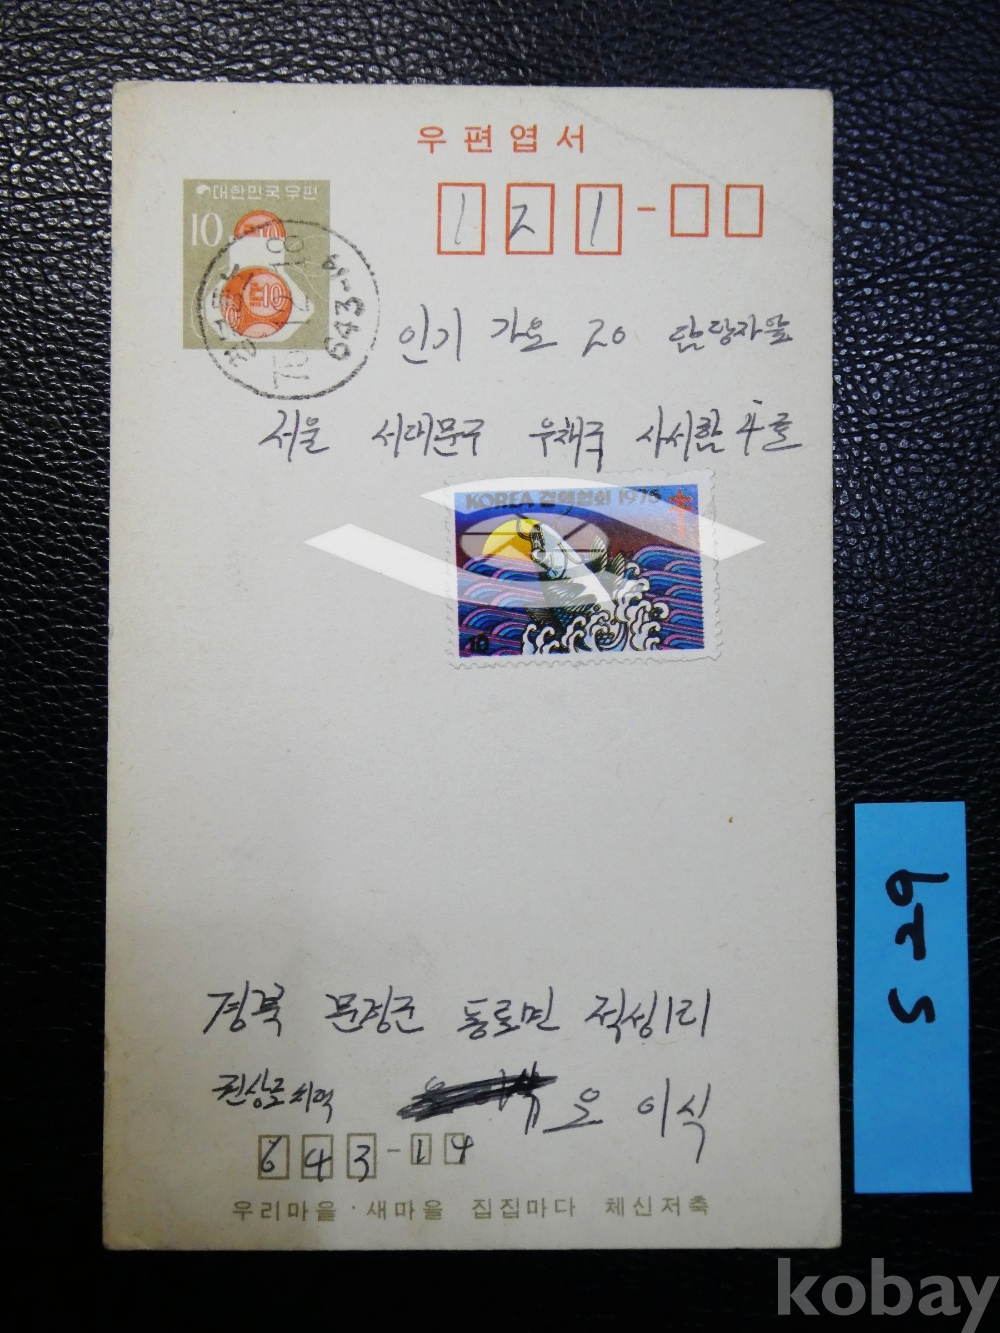 우편엽서
대한민국우편
10
121-
643-14
인기 가요 20 담당자앞
서울 서대문구 우체국 사서함 4호
KOREA 결핵협회 1975
10
경북 문경군 동로면 적성1리
권상로 치역
오 이식
643-14
우리마을·새마을 집집마다 체신저축
529
kobay